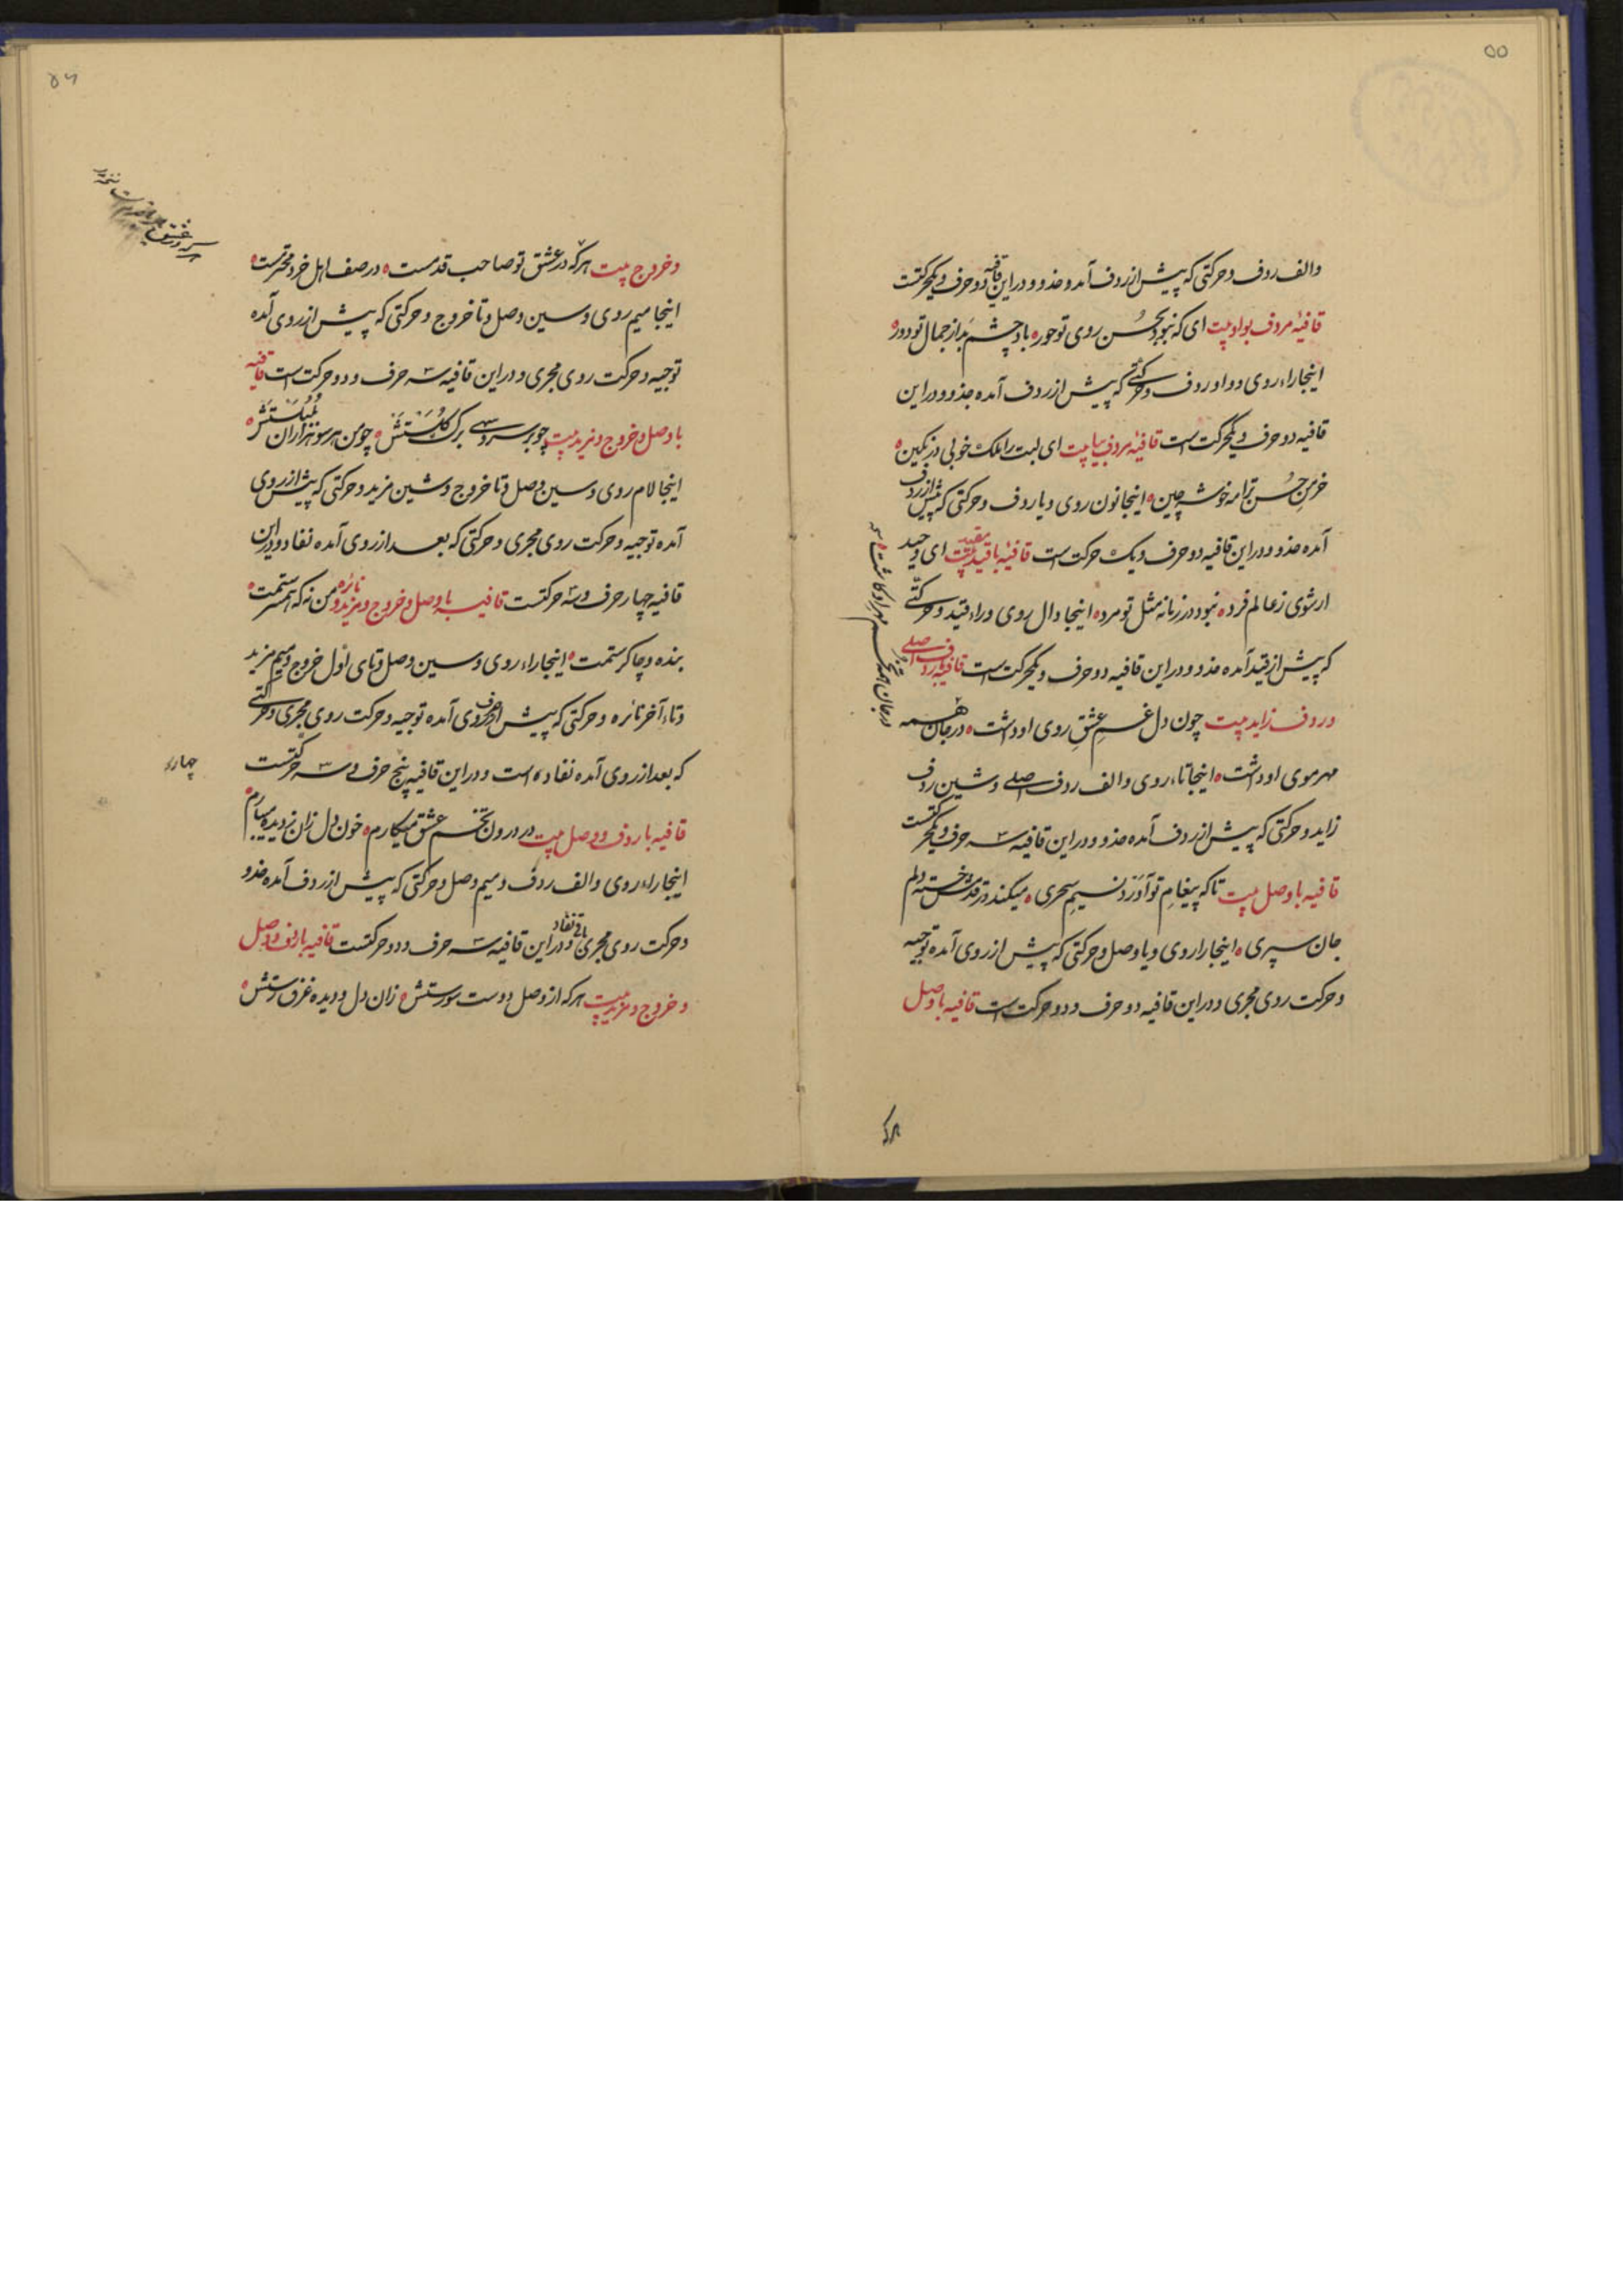 ۵۵
والف ردف و حرکتی که پیش از ردف آمده حذو و در این قافیه دو حرف و یکحرکتست
قافیهٔ مردف بواو بیت ای که نبود بحُسن روی تو حور ٥ باد چشم بد از جمال تو دور ٥
اینجا راء روی و واو ردف و حرکتی که پیش از ردف آمده حذو و در این
قافیه دو حرف و یکحرکت است قافیهٔ مردف بیا بیت ای لبت را ملک خوبی در نگین ٥
خرمن حُسن ترا مه خوشه چین ٥ اینجا نون روی و یا ردف و حرکتی که پیش از ردف
آمده حذو و در این قافیه دو حرف و یک حرکت است قافیهٔ با قید بیت ای وحید
ز عالم فرد ٥ نبود در زمانه مثل تو مرد ٥ اینجا دال روی و راء قید و حرکتی
که پیش از قید آمده حذو و در این قافیه دو حرف و یکحرکت است قافیه با ردف اصلی
و ردف زاید بیت چون دل غم عشقِ روی او داشت ٥ در جان همه
مهر موی او داشت ٥ اینجا تاء روی و الف ردف اصلی و شین ردف
زاید و حرکتی که پیش از ردف آمده حذو و در این قافیه سه حرف و یکحرکتست
قافیه با وصل بیت تا که پیغامِ تو آوَرْد نسیمِ سحری ٥ میکند در خسته دلم
جان سپری ٥ اینجا را روی و یا وصل و حرکتی که پیش از روی آمده توجیه
و حرکت روی مجری و در این قافیه دو حرف و دو حرکت است قافیه با وصل
هرکه
۵۶
و خروج بیت هرکه در عشق تو صاحب قدمست ٥ در صف اهل خرد محترمست ٥
اینجا میم روی و سین وصل و تا خروج و حرکتی که پیش از روی آمده
توجیه و حرکت روی مجری و در این قافیه سه حرف و دو حرکت است قافیه
با وصل و خروج و مزید بیت چو بر سرو سهی برگ گلستش ٥ چو من هر سو هزاران بلبلستش ٥
اینجا لام روی و سین وصل و تا خروج و شین مزید و حرکتی که پیش از روی
آمده توجیه و حرکت روی مجری و حرکتی که بعد از روی آمده نفاد و در این
قافیه چهار حرف و سه حرکتست قافیه با وصل و خروج و مزید و نائره من نه که همسرستمت ٥
بنده و چاکرستمت ٥ اینجا راء روی و سین وصل و تای اول خروج و میم مزید
و تاء آخر نائره و حرکتی که پیش از حرف روی آمده توجیه و حرکت روی مجری و حرکتی
که بعد از روی آمده نفاد است و در این قافیه پنج حرف و سه حرکتست
قافیه با ردف و وصل بیت در درون تخم عشق میکارم ٥ خون دل زان ز دیده میبارم ٥
اینجا راء روی و الف ردف و میم وصل و حرکتی که پیش از ردف آمده حذو
و حرکت روی مجری و در این قافیه سه حرف و دو حرکتست قافیه با ردف و وصل
و خروج و مزید بیت هرکه از وصل دوست سورستش ٥ زان دل و دیده غرق